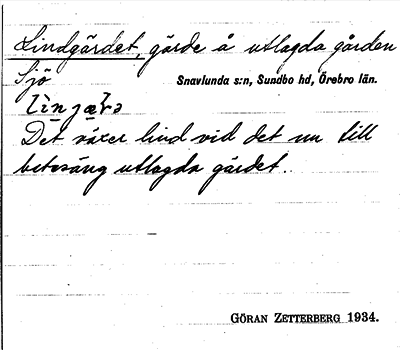 Lindgärdet, gärde å utlagda gården
Sjö
Snavlunda s:n, Sundbo hd, Örebro län.
Det växer lind vid det nu till
betesäng utlagda gärdet.
GÖRAN ZETTERBERG 1934.